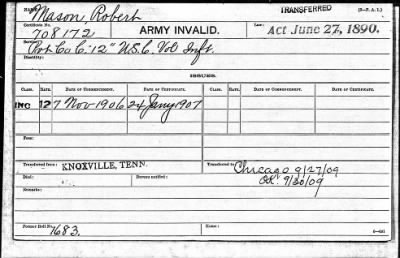 TRANSFERRED
Name: Mason, Robert (3-P. A. I.)
Certificate No. 708172 ARMY INVALID. Act June 27, 1890.
Service: Pvt. Co C. 12" U.S.C. Vol Inft.
Disability:
ISSUES.
CLASS. RATE. DATE OF COMMENCEMENT. DATE OF CERTIFICATE. CLASS. RATE. DATE OF COMMENCEMENT. DATE OF CERTIFICATE.
INC 12 7 Nov 1906 24 Jany 1907
From: Home:
Transferred from: KNOXVILLE, TENN. Transferred to: Chicago 9/27/09
OK 9/30/09
Died: Bureau notified:
Remarks:
Former Roll No. 1683. Home: